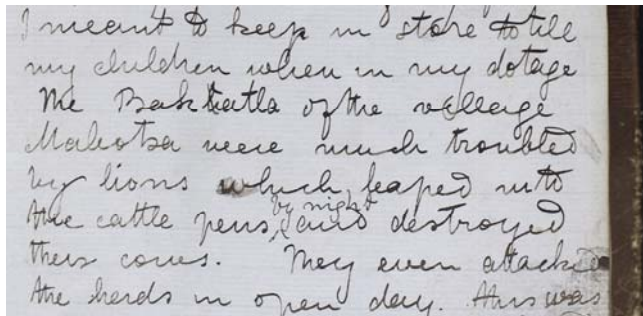 I meant to keep in store to tell
my children when in my dotage
The Bakhatla of the village
Mabotsa were much troubled
by lions which leaped into
the cattle pens by night and destroyed
their cows. They even attacked
the herds in open day. This was